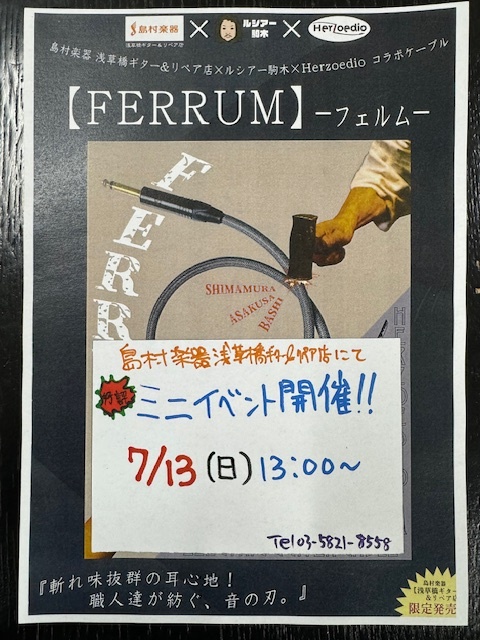 島村楽器
浅草橋ギター&リペア店
×
ルシアー
駒木
×
Herzoedio
島村楽器 浅草橋ギター&リペア店×ルシアー駒木×Herzoedio コラボケーブル
【FERRUM】ーフェルムー
FERR
SHIMAMURA
ASAKUSA
BASHI
島村楽器浅草橋ギター&リペア店にて
ミニイベント開催!!
7/13(日)13:00～
Tel 03-5821-8558
『斬れ味抜群の耳心地!
職人達が紡ぐ、音の刃。』
島村楽器
【浅草橋ギター
&リペア店
限定発売